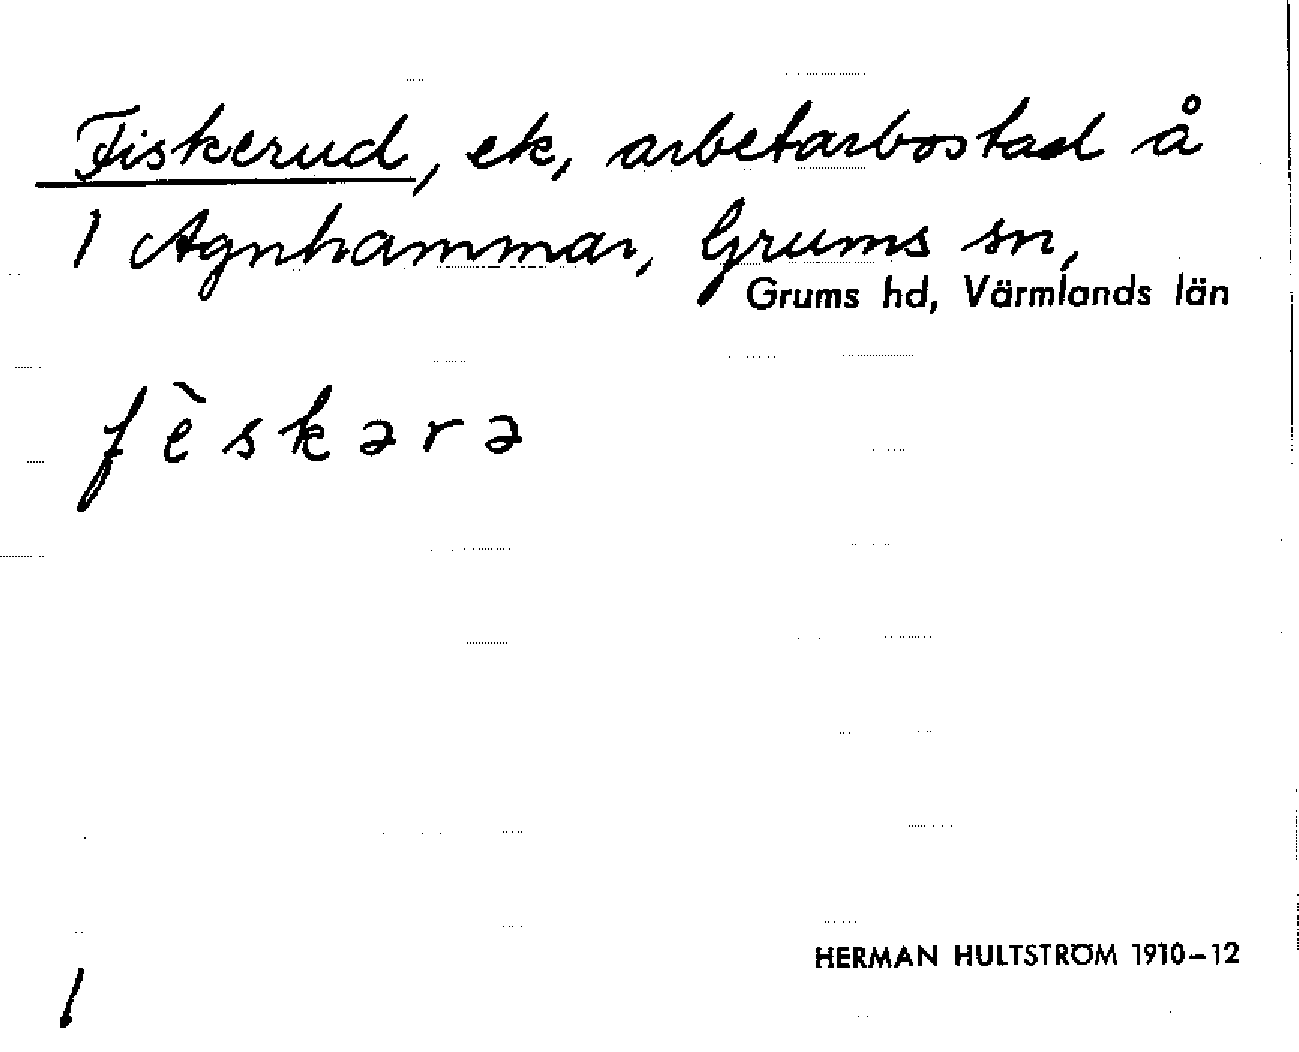 Fiskerud, ek, arbetarbostad å
1 Agnhammar, Grums sn,
Grums hd, Värmlands län
fèskərə
HERMAN HULTSTRÖM 1910–12